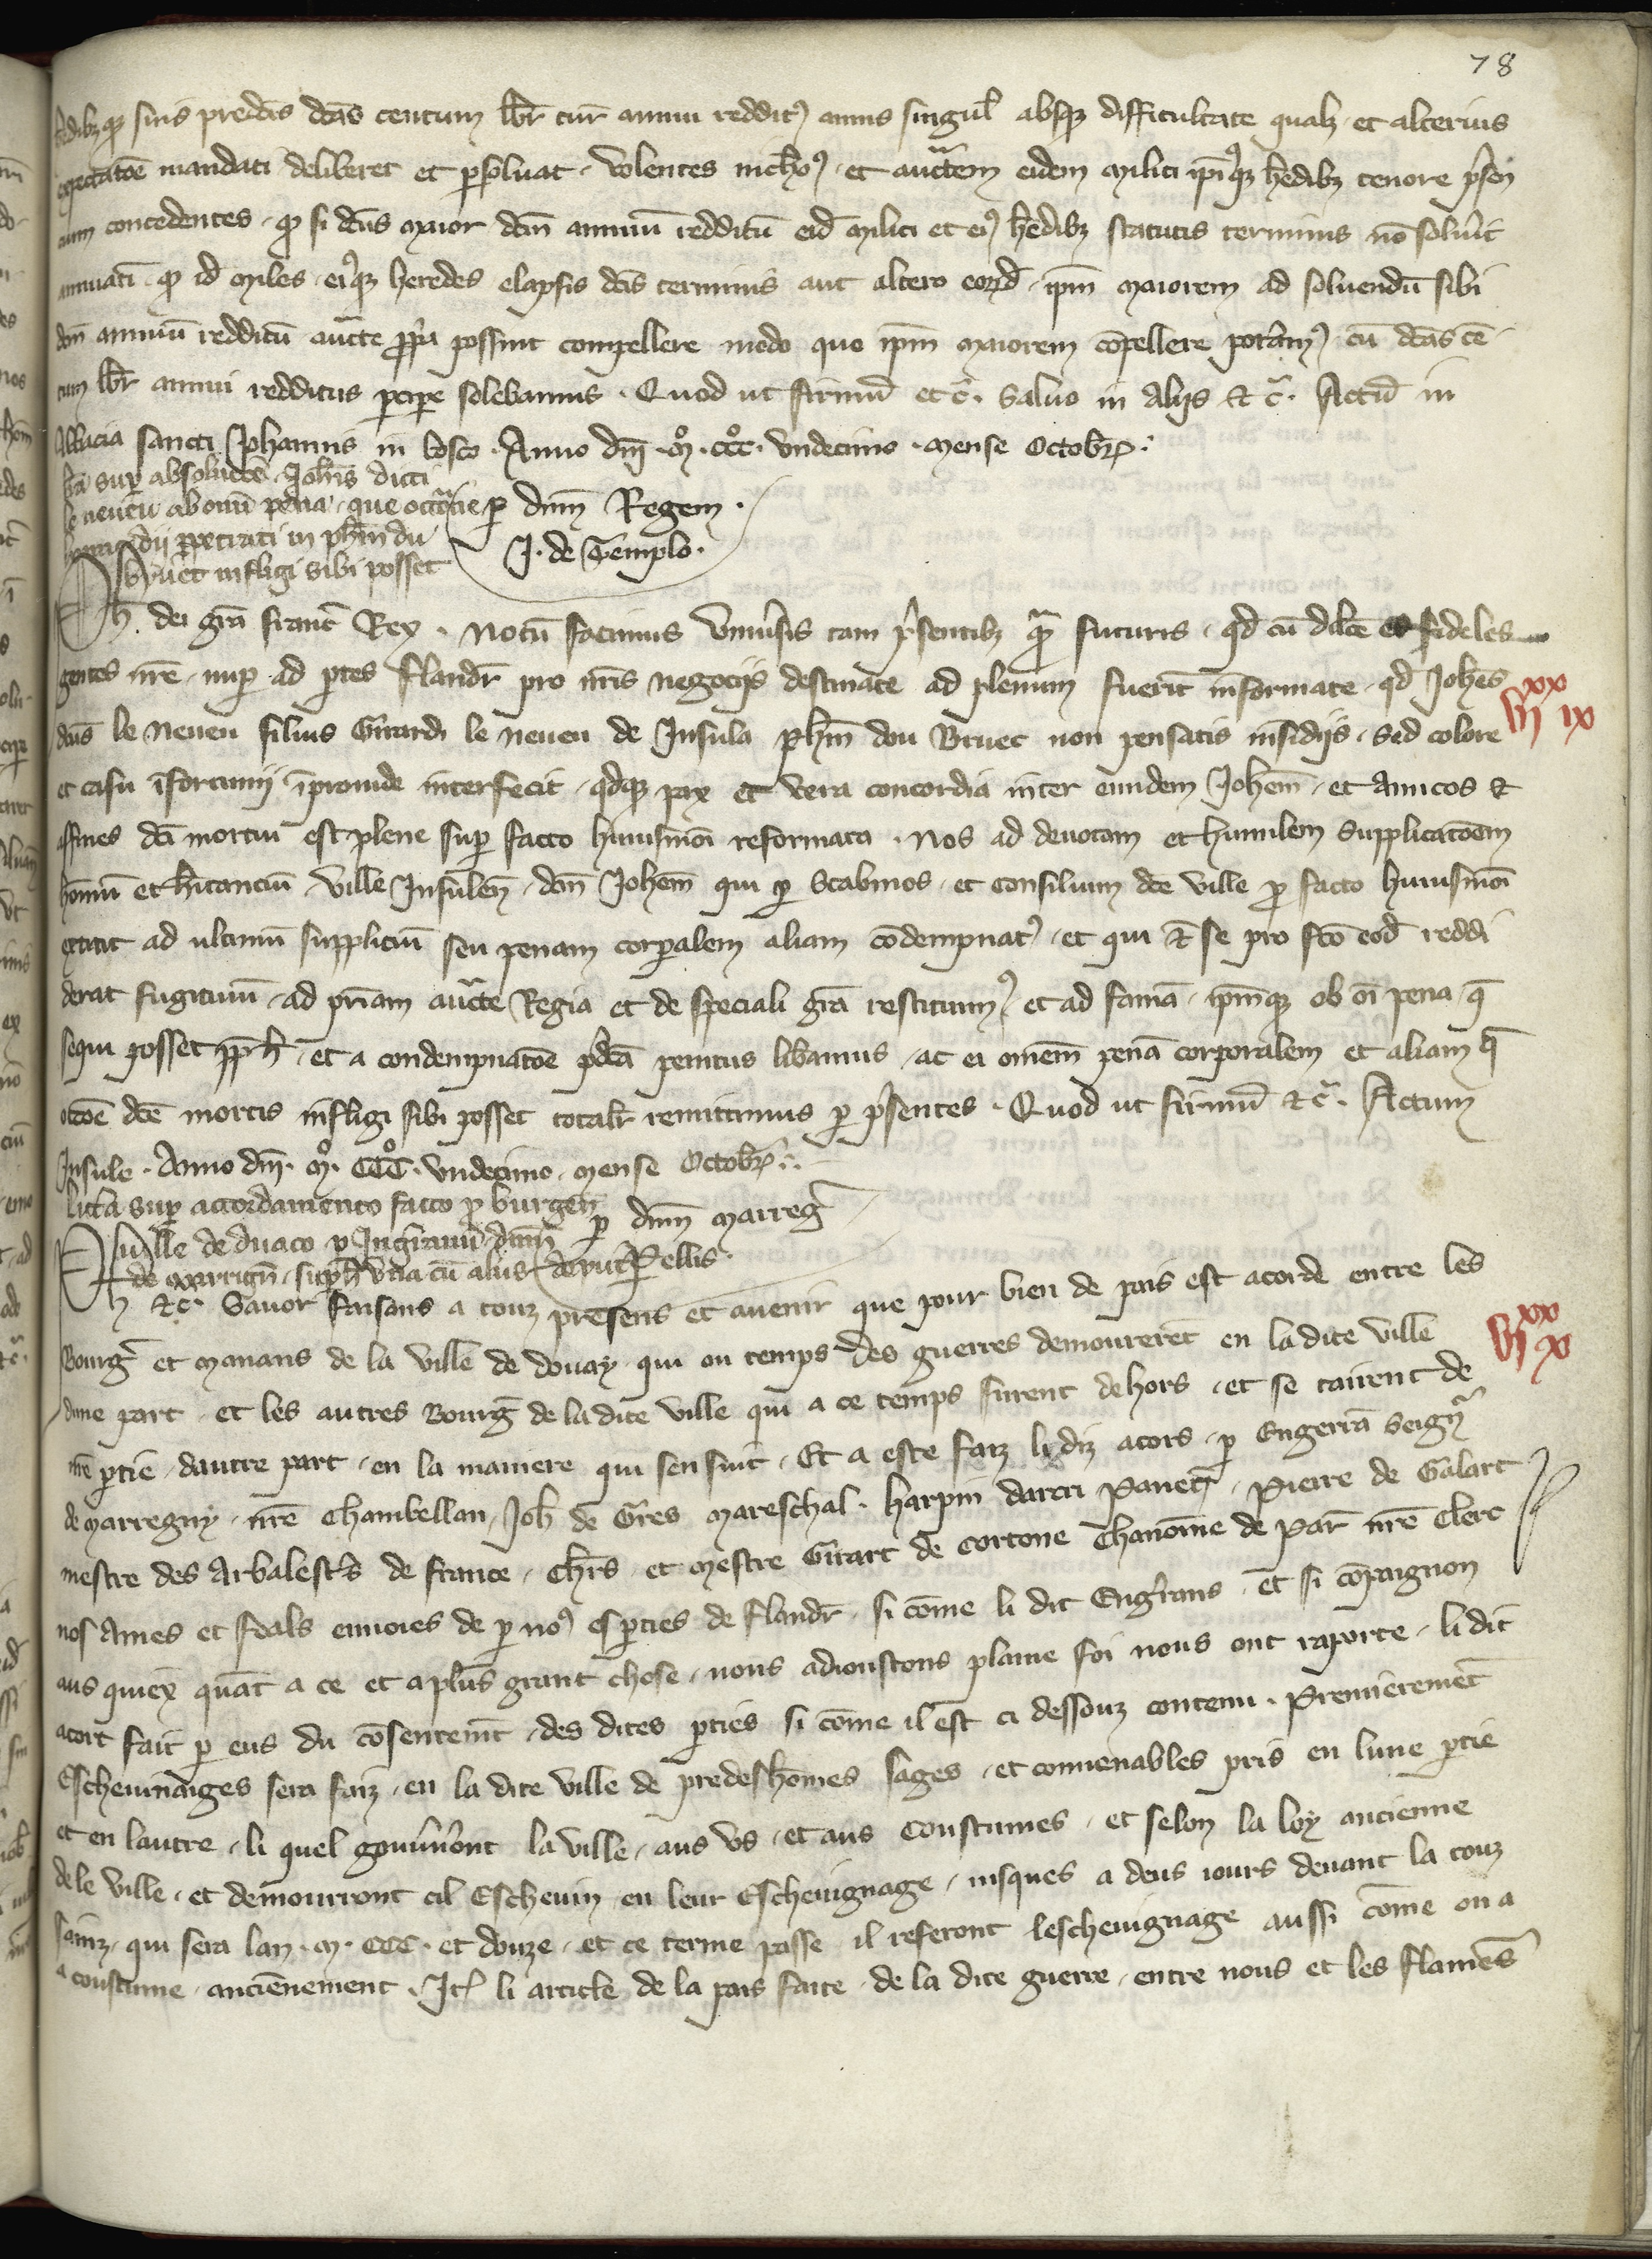 78
hedibz qz suis predcis dcas centum libr tur annui redditus annis singulis absqz difficultate qualz et alterius
expectacoe mandati deliberet et persoluat. Volentes nichos et auctem eidem militi ipiqz hedibz tenore presen
cium concedentes. qz si dcus maior dcm annuu redditu eid militi et eius hedibz statutis terminis no soluit
annuati qz id miles eiqz heredes elapsis dcis terminis aut altero eord ipm maiorem ad soluendu sibi
dcm annuu redditu aucte ppria possint compellere modo quo ipm maiorem copellere poteramus cu dcas ce
tum libr annui redditus percipere solebamus. Quod ut firmu etc. Saluo in aliis etc. Actu in
Abbacia sancti Johannis in bosco. Anno dni .mo.ccco. undecimo. mense Octobr.
lra sup absolucoe Johis dicti
le neueu ab omi pena que occasioe
homicidii perpetrati in phm du
bruec infligi sibi posset
per dnm Regem.
J. de Templo.
Ph. dei gra franc Rex. Notu facimus vniuersis tam presentibz qam futuris. qd cu dilce et fideles
gentes nre nup ad partes flandr pro nris negociis destinate ad plenum fuerit informate qd Johes
dcus le neueu filius Girardi le neueu de Insula phm dou Bruec non pensatis insidiis. Sed colore
VI xx IX
et casu ifortunii iprouide interfecit. qdqz pax et vera concordia inter eundem Johem et amicos et
affines dci mortui est plene sup facto huiusmoi reformata. Nos ad deuotam et humilem supplicacoem
homiu et hitanciu ville Insulen dcm Johem qui per Scabinos et consilium dce ville pro facto huiusmoi
extitit ad ultimu suppliciu seu penam corporalem aliam codempnatus et qui et se pro fco eod reddi
derat fugitiuu ad priam aucte Regia et de speciali gra restituimus et ad fama ipmqz ob oi pena q
sequi posset pph et a condempnacoe pdca penitus libamus ac ei omem pena corporalem et aliam q
occoe dce mortis infligi sibi posset totalr remittimus per presentes. Quod ut firmu etc. Actum
Insule. Anno dni. mo. CCCo. undecimo. mense Octobr.
littera sup accordamento facto per burgen
ville de duaco per Ingerannu dnm
de marrign. simul una cu aliis deput
per dnm marreg
P. Ellis.
Ph etc. Sauoir faisons a touz presens et auenir que pour bien de pais est acorde entre les
Bourg et manans de la ville de douay qui ou temps des guerres demourerent en la dite ville
VI xx X
dune part. et les autres Bourg de la dite ville qui a ce temps furent dehors. et se tairent de
nre partie dautre part en la maniere qui sensuit. Et a este faiz li diz acors par Engerra Seigr
de marregny nre Chambellan. Joh de Gres mareschal. harpin darcri Panet. Pierre de Galart
mestre des Arbalestrs de france. Chrs et mestre Girart de cortone chanoine de Par nre Clerc
nos ames et feals enuoies de par nos es parties de flandr. si come li dit Engerrans et si copaignon
aus quiex quat a ce et a plus grant chose nous adioustons plaine foi nous ont raporte. li dit
acort fait par eus du cosentemt des dites parties si come il est ci dessouz contenu. Premierement
Escheuinaiges sera faiz en la dite ville de predeshomes sages et conuenables pris en lune partie
et en lautre. li quel gouuernont la ville aus us et aus coustumes. et selon la loy ancienne
de le ville. et demourront cil Escheuin en leur Escheuignage iusques a deus iours deuant la touz
sainz qui sera lan .m. CCC. et douze. et ce terme passe il referont lescheuignage aussi come on a
acoustume ancienement. Item li article de la pais faite de la dite guerre entre nous et les flamens